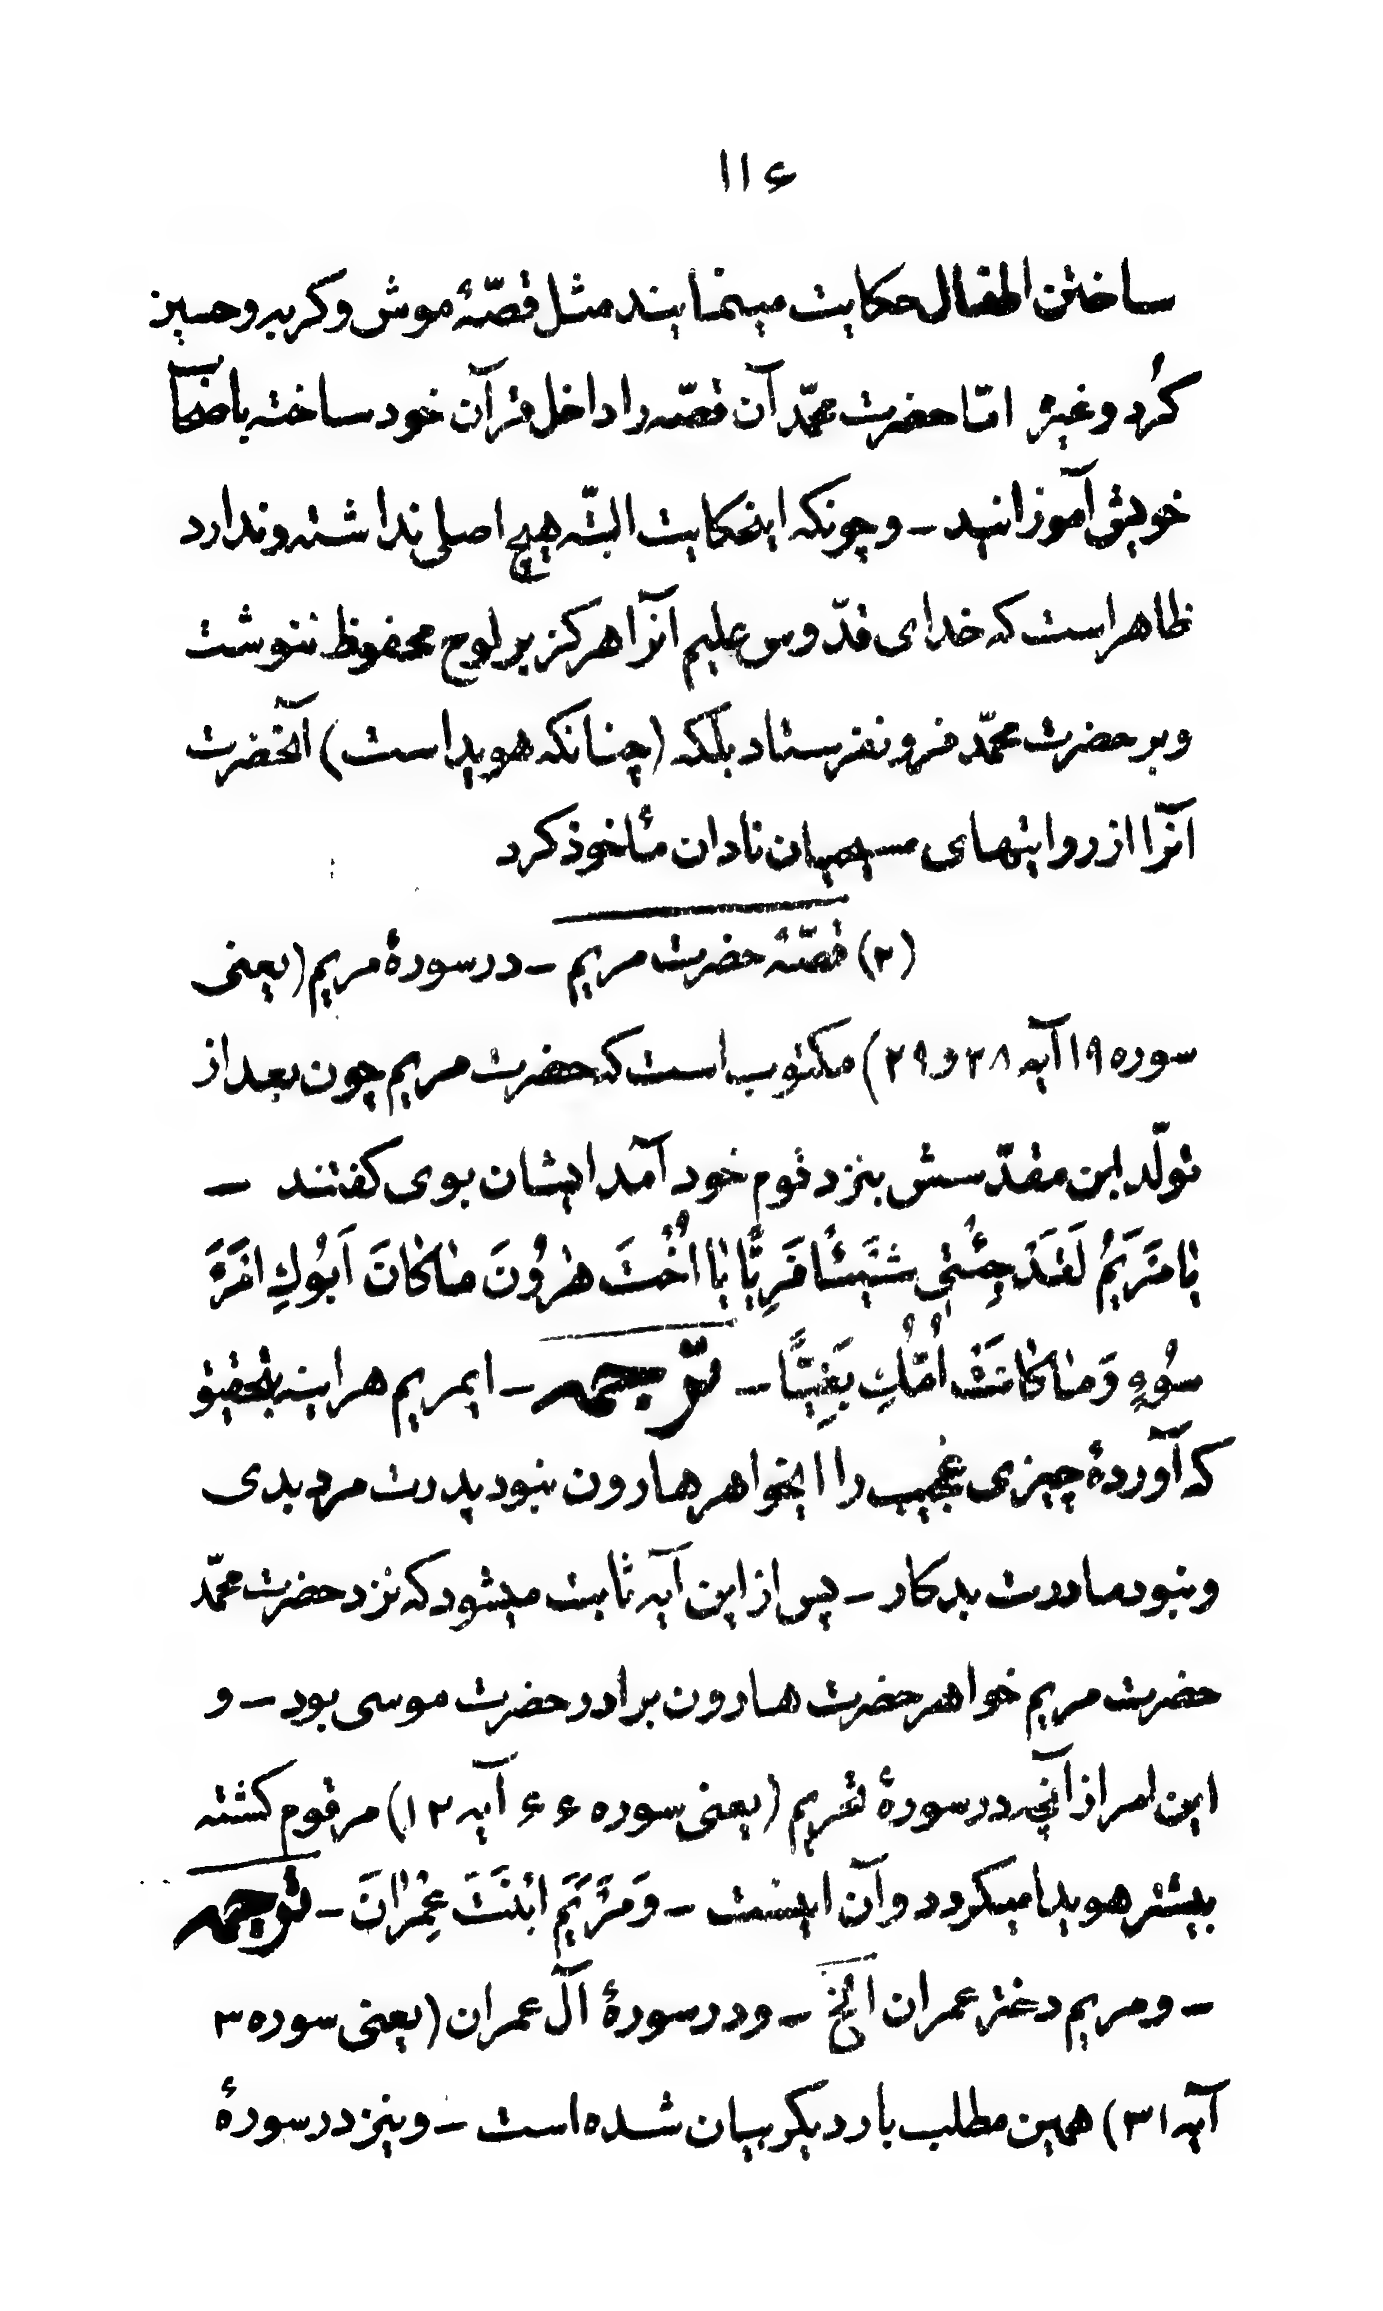 ۱۱۶
ساختن اطفال حکایت مینمایند مثل قصّهٔ موش و کربه و حسین
کُرد و غیره امّا حضرت محمّد آن قصّه را داخل قرآن خود ساخته باصحاب
خویش آموزانید ــ و چونکه اینحکایت البتّه هیچ اصلی نداشته و ندارد
ظاهر است که خدای قدّوس علیم آنرا هرکز بر لوح محفوظ ننوشت
و بر حضرت محمّد فرو نفرستاد بلکه (چنانکه هویداست) آنحضرت
آنرا از روایتهای مسیحیان نادان مأخوذ کرد
(۲) قصّهٔ حضرت مریم ــ در سورهٔ مریم (یعنی
سوره ۱۹ آیه ۲۸ و ۲۹) مکتوب است که حضرت مریم چون بعد از
تولّد ابن مقدّسش بنزد قوم خود آمد ایشان بوی کفتند ــ
یٰا مَرْیَمُ لَقَدْ جِئْتِ شَیْئًا فَرِیًّا یٰا اُخْتَ هٰرُونَ مٰا کٰانَ اَبُوكِ امْرَءَ
سُوءٍ وَ مٰا کٰانَتْ اُمُّكِ بَغِیًّا ــ ترجمه ــ ایمریم هراینه بتحقیق
که آوردهٔ چیزی عجیب را ایخواهر هارون نبود پدرت مرد بدی
و نبود مادرت بدکار ــ پس از این آیه ثابت میشود که نزد حضرت محمّد
حضرت مریم خواهر حضرت هارون برادر حضرت موسی بود ــ و
این امر از آنچه در سورهٔ تحریم (یعنی سوره ۶۶ آیه ۱۲) مرقوم کشته
بیشتر هویدا میکردد و آن اینست ــ وَ مَرْیَمَ ابْنَتَ عِمْرٰانَ ــ ترجمه
ــ و مریم دختر عمران الخ ــ و در سورهٔ آل عمران (یعنی سوره ۳
آیه ۳۱) همین مطلب بار دیکر بیان شده است ــ و نیز در سورهٔ